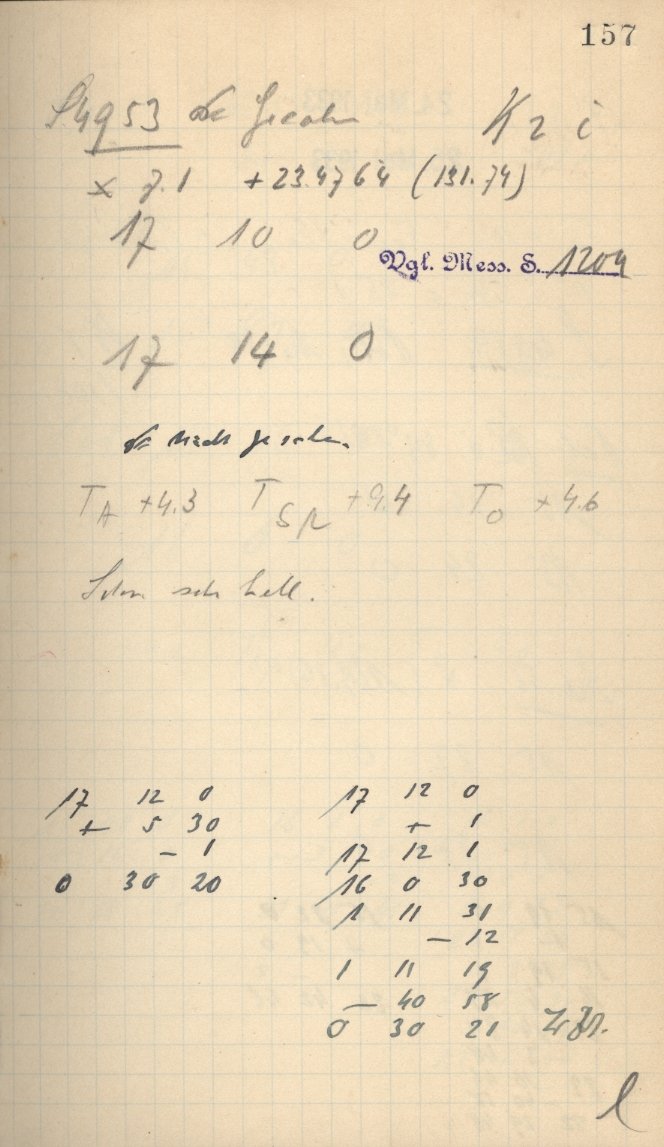 157
S4953 K 2 i
× 7.1 +23.4764 (131.74)
17 10 0
Vgl. Mess. S. 1204
17 14 0
nach gesehen.
T A +4.3 T SpR +9.4 T O +4.6
Schon sehr hell.
17 12 0
+ 5 30
– 1
0 30 20
17 12 0
+ 1
17 12 1
16 0 30
1 11 31
– 12
1 11 19
– 40 58
0 30 21